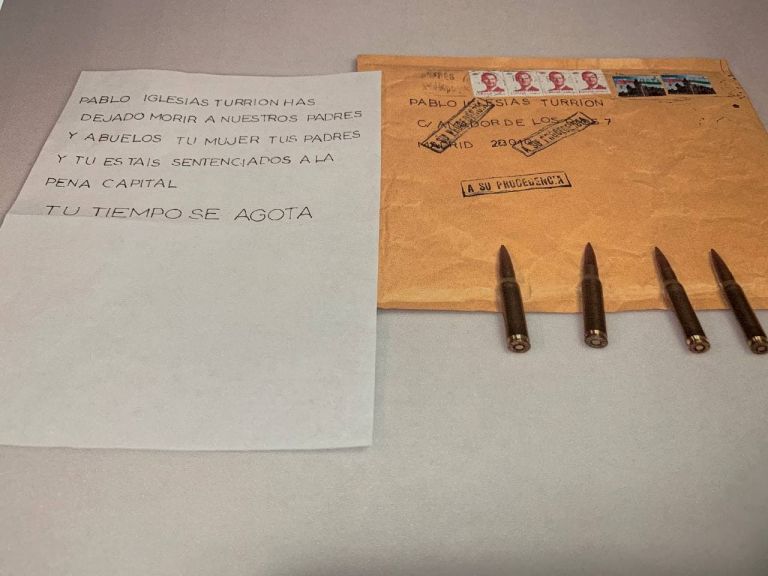 PABLO IGLESIAS TURRION HAS
DEJADO MORIR A NUESTROS PADRES
Y ABUELOS TU MUJER TUS PADRES
Y TU ESTAIS SENTENCIADOS A LA
PENA CAPITAL
TU TIEMPO SE AGOTA
PABLO IGLESIAS TURRION
C/ AMADOR DE LOS 7
MADRID
A SU PROCEDENCIA
A SU PROCEDENCIA
A SU PROCEDENCIA